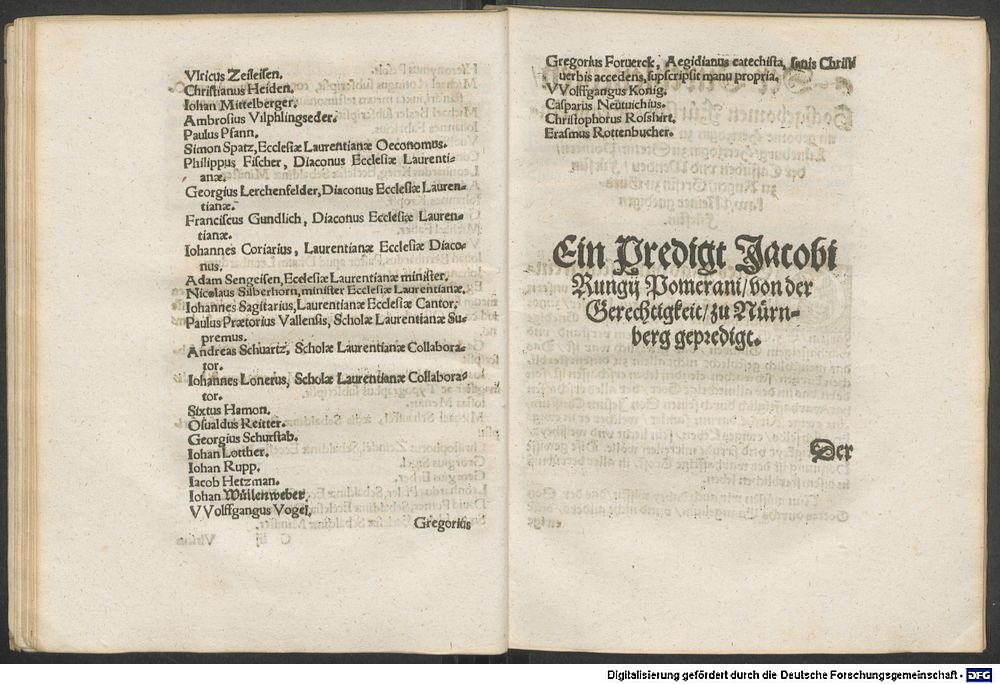 Vlricus Zeiſeiſen.
Chriſtianus Heiden.
Iohan Mittelberger.
Ambroſius Vilphlingseder.
Paulus Pfann.
Simon Spatz, Eccleſiæ Laurentianæ Oeconomus.
Philippus Fiſcher, Diaconus Eccleſiæ Laurenti-
anæ.
Georgius Lerchenfelder, Diaconus Eccleſiæ Lauren-
tianæ.
Franciſcus Gundlich, Diaconus Eccleſiæ Lauren-
tianæ.
Iohannes Coriarius, Laurentianæ Eccleſiæ Diaco-
nus.
Adam Sengeiſen, Eccleſiæ Laurentianæ miniſter.
Nicolaus Silberhorn, miniſter Eccleſiæ Laurentianæ.
Iohannes Sagitarius, Laurentianæ Eccleſiæ Cantor.
Paulus Prætorius Vallenſis, Scholæ Laurentianæ Su-
premus.
Andreas Schuartz, Scholæ Laurentianæ Collabora-
tor.
Iohannes Lonerus, Scholæ Laurentianæ Collabora-
tor.
Sixtus Hamon.
Oſualdus Reitter.
Georgius Schurſtab.
Iohan Lotther.
Iohan Rupp.
Iacob Hetzman.
Iohan Wüllenweber.
VVolffgangus Vogel.
Gregorius
Gregorius Foruerck, Aegidianus catechiſta, ſanis Chriſti
uerbis accedens, ſupſcripſit manu propria.
VVolffgangus Konig.
Caſparus Neuuichius.
Chriſtophorus Roſshirt.
Eraſmus Rottenbucher.
Ein Predigt Jacobi
Rungij Pomerani/von der
Gerechtigkeit/zu Nürn-
berg gepredigt.
Der
Digitalisierung gefördert durch die Deutsche Forschungsgemeinschaft - DFG